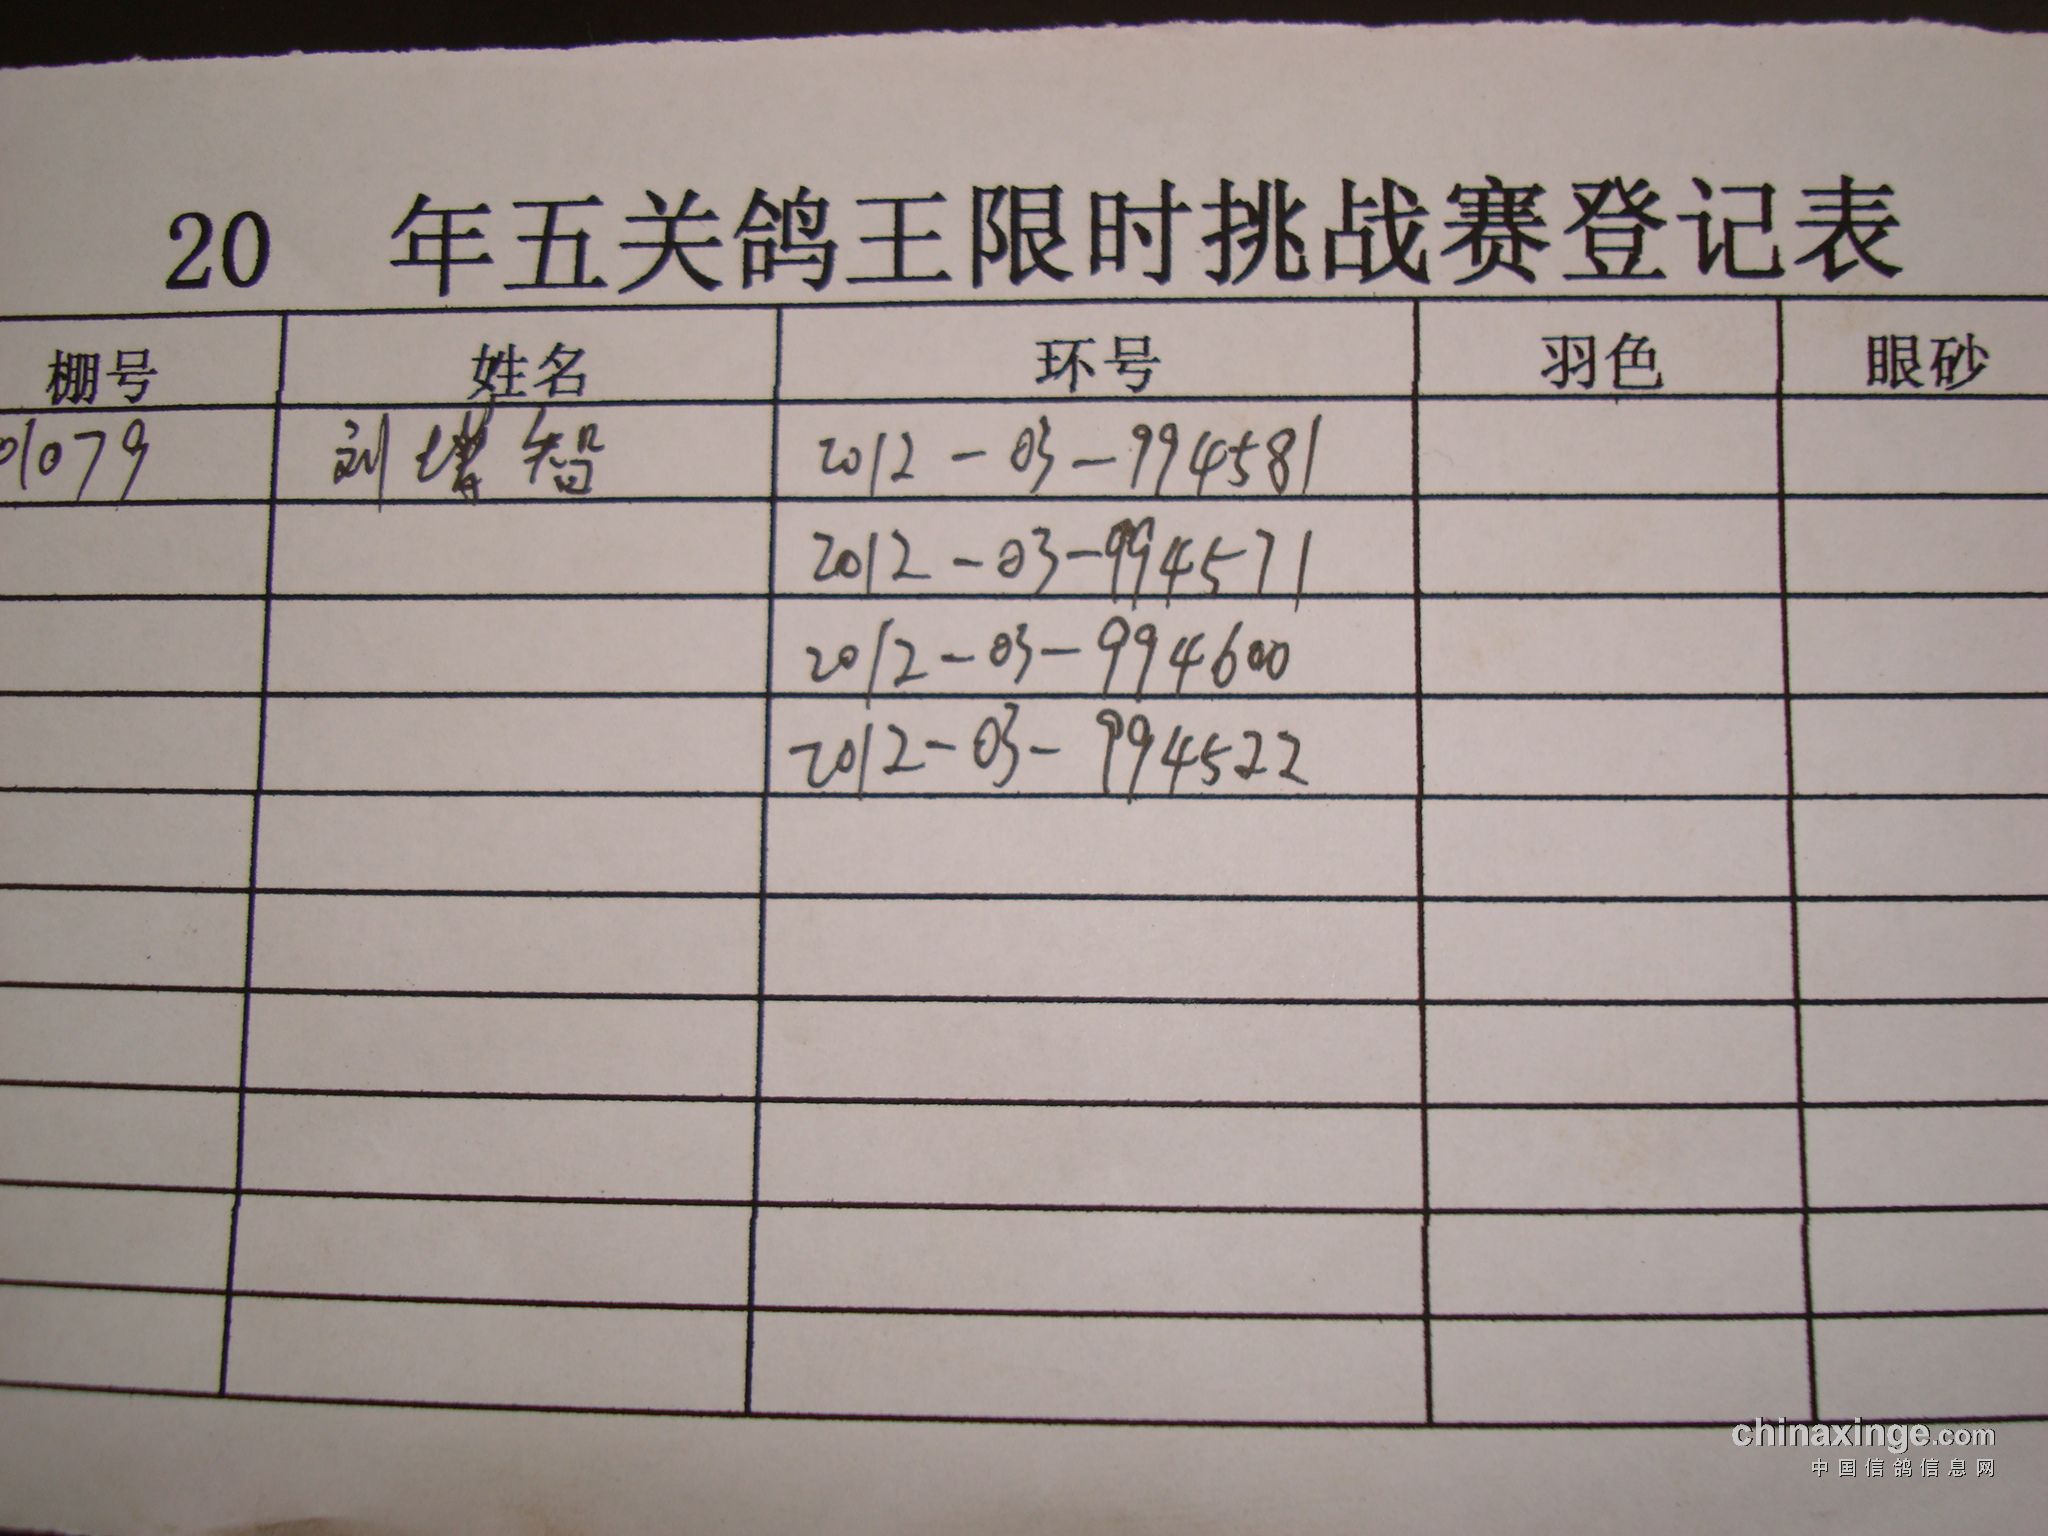 20 年五关鸽王限时挑战赛登记表
棚号 姓名 环号 羽色 眼砂
01079 刘增智 2012-03-994581
2012-03-994571
2012-03-994600
2012-03-994522
chinaxinge.com
中国信鸽信息网